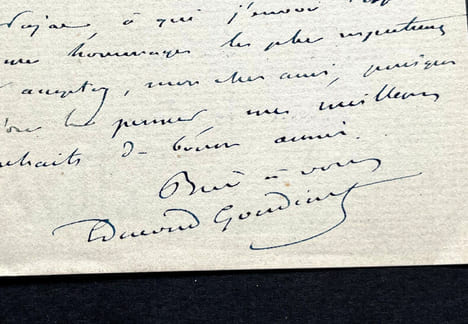 à qui j'envoie
hommages les plus respectueux
acceptez, mon cher ami, puisque
permet, mes meilleurs
souhaits de bonne année.
Bien à vous
Edmond Gondinet